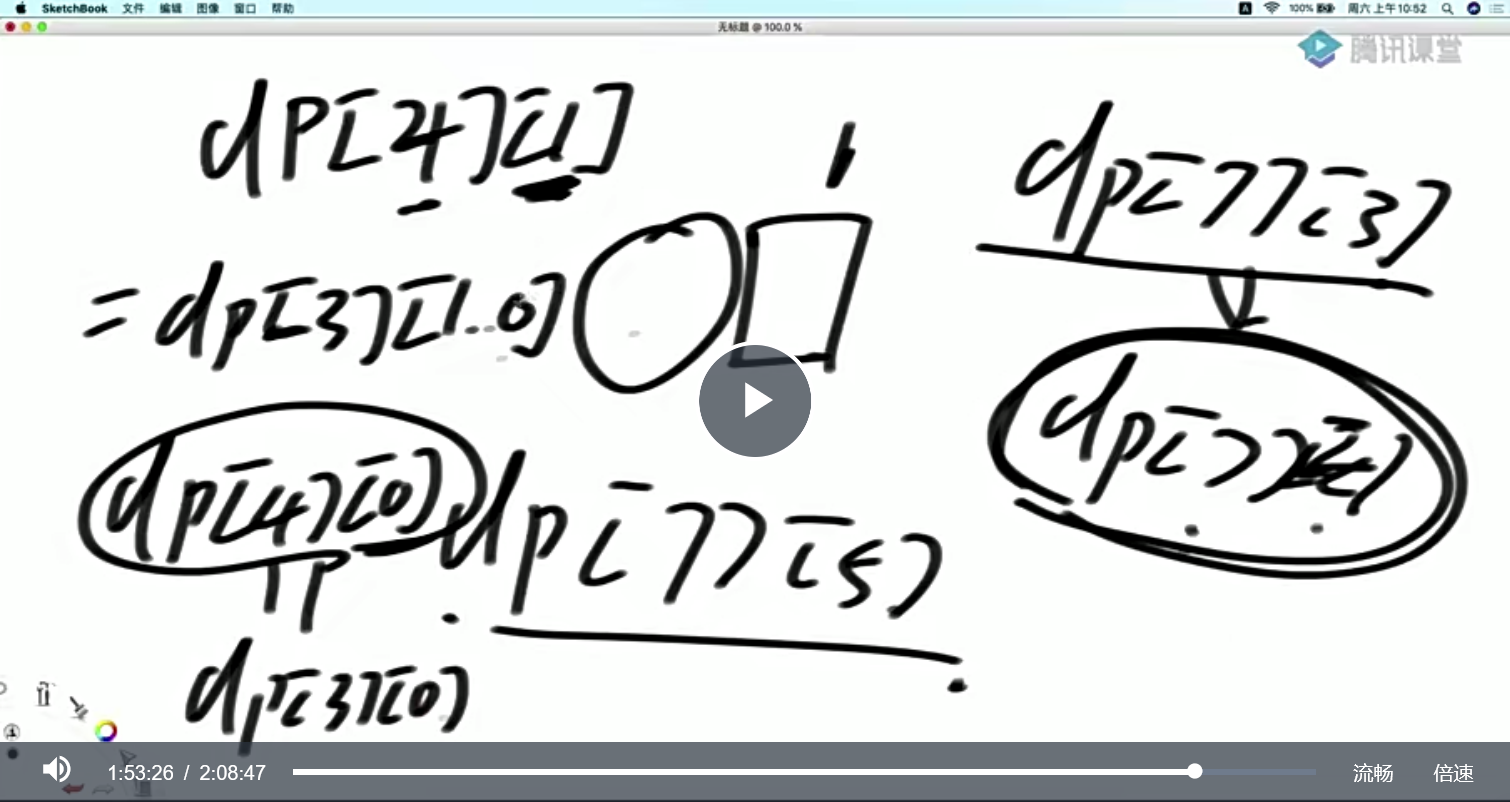 SketchBook 文件 编辑 图像 窗口 帮助 A 100% 周六上午10:52
无标题 @ 100.0 %
腾讯课堂
dp[4][1]
= dp[3][1..0]
dp[7][3]
dp[4][0]
dp[7][5]
dp[3][0]
1:53:26 / 2:08:47 流畅 倍速